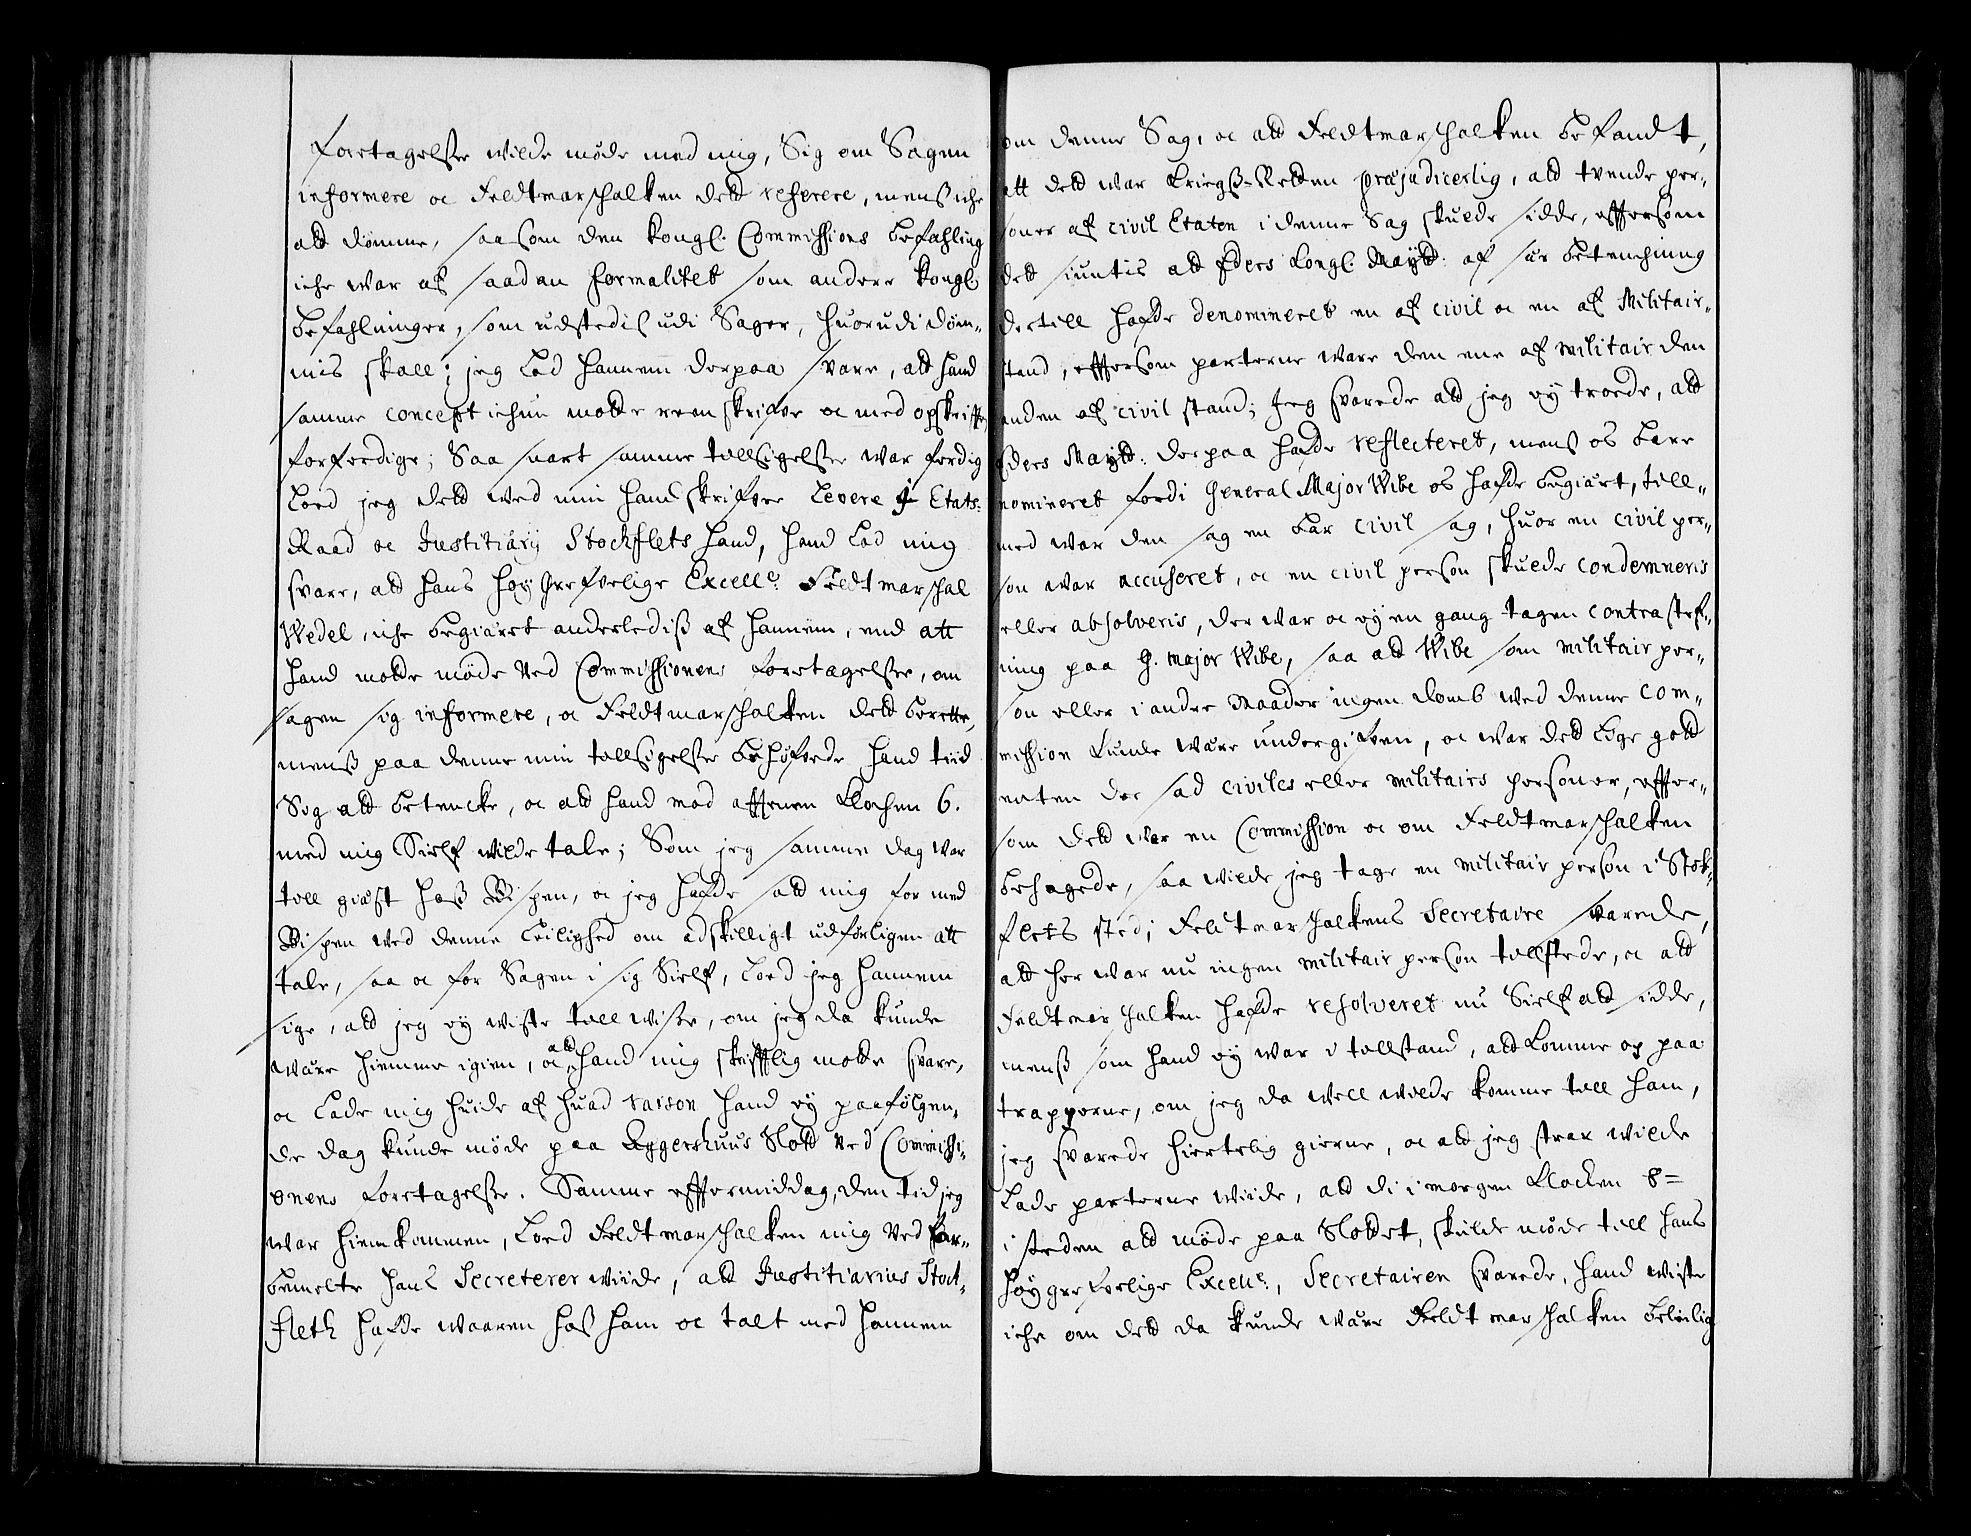 foretagelsse wilde møde med mig, Sig om Sagen
informere oc Feldtmarschalken deld referere, menß iche
ald dømme, saasom den kongl. Commissions befahling
iche war af saadan formalitet som andere kongl.
befahlninger, som udstedis udi Sager, huorudi døm-
mis skall; jeg lod hannem derpaa svare, ald hand
samme concept ichun motte reenskrifve oc med opskrifft
forferdige; Saa snart samme tillsigelsse war ferdig
loed jeg deld wed min handskrifver levere i Etats-
Raad oc Justitiarij Stockflets hand, hand lod mig
svare, ald hans høy Grefvelige Excelle. Feldtmarschal
Wedel, iche begiæret anderlediß af hannem, end att
hand motte møde ved Commissionens foretagelsse, om
sagen sig informere, oc Feldtmarschalken deld berette,
menß paa denne min tillsigelsse behøfvede hand tiid
Sig ald betencke, oc ald hand mod afftenen Klochen 6.
med mig Sielf wilde tale; Som jeg samme dag war
till giæst hoß Bispen, oc jeg hafde satt mig for med
Bispen ved denne leilighed om adskilligt udførligen att
tale, saa oc for Sagen i sig Sielf, loed jeg hannem
sige, ald jeg ey wiste till wisse, om jeg da kunde
være hiemme igien, oc ald hand mig skrifftlig motte svare,
oc lade mig huide af huad raison hand ey paafølgen-
de dag kunde møde paa Aggershuus Slott ved Commissi-
onens foretagelsse. Samme efftermiddag, den tid jeg
war hiemkommen, loed Feldtmarschalken mig ved for-
bemelte hans Secreterer wiide, ald Justitiarius Stoch-
fleth hafde waaren hoß ham oc talt med hannem
om denne Sag, oc ald Feldtmarschalken befandt,
att deld war Kriegß-Retten præjudicerlig, ald tvende per-
soner af civil Etaten i denne Sag skulde sidde, effersom
det siuntis ald Eders Kongl. Mayts: af sær betenchning
dertill hafde denomineret en af civil oc en af Militair-
stand, effersom parterne ware den ene af militair den
anden af civil stand; Jeg svarede ald jeg ey troede, ald
Eders Mayts: derpaa hafde reflecteret, menß os bare
nomineret fordi General Major Wibe os hafde begiært, till-
med war den sag en bar civil sag, huor en civil per-
son war accuseret, oc en civil person skulde condemneris
eller absolveris, der war oc ey en gang tagen contrastef-
ning paa G. Major Wibe, saa ald Wibe som militair per-
son eller i andre Maader ingen domb wed denne Com-
mission kunde være undergifven, oc war deld lige gott
enten der sad civiles eller militairs personer, effter-
som deld war en Commission oc om Feldtmarschalken
behagede, saa wilde jeg tage en militair person i Stok-
flets sted; Feldtmarschalkens Secretaire svarede,
ald her war nu ingen militair person tillstede, oc ald
Feldtmarschalken hafde resolveret nu Sielf ald sidde,
menß som hand ey war i tillstand, ald komme op paa
trapperne, om jeg da well wilde komme till ham,
jeg svarede hiertelig gierne, oc ald jeg strax wilde
lade parterne wiide, ald di i morgen Klocken 8=
i steden ald møde paa Slottet, skulde møde till hans
høygrefvelige Excelle., Secretairen svarede, hand wiste
iche om deld da kunde være Feldtmarschalken beleilig